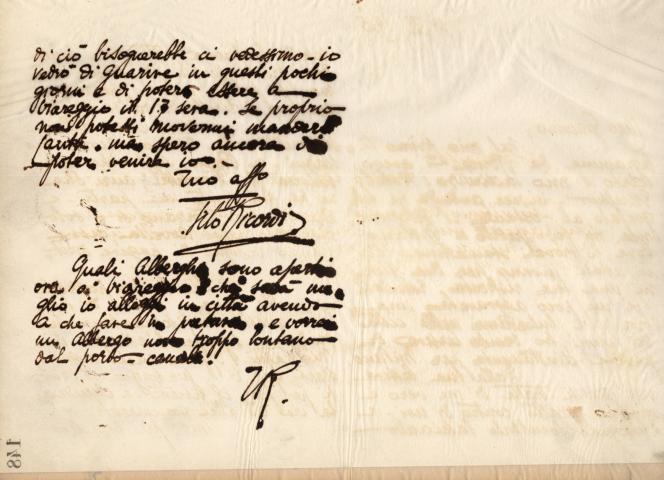 di ciò bisognerebbe ci vedessimo - io
vedrò di guarire in questi pochi
giorni e di poter essere a
Viareggio il 13 sera. Se proprio
non potessi muovermi manderò
ma spero ancora di
poter venire io. -
Tuo affo
Tito Ricordi
Quali Alberghi sono aperti
ora a Viareggio? che sarà me
glio io alloggi in città avendo
a che fare in e vorrei
un Albergo non troppo lontano
dal porto - canale.
TR.
148